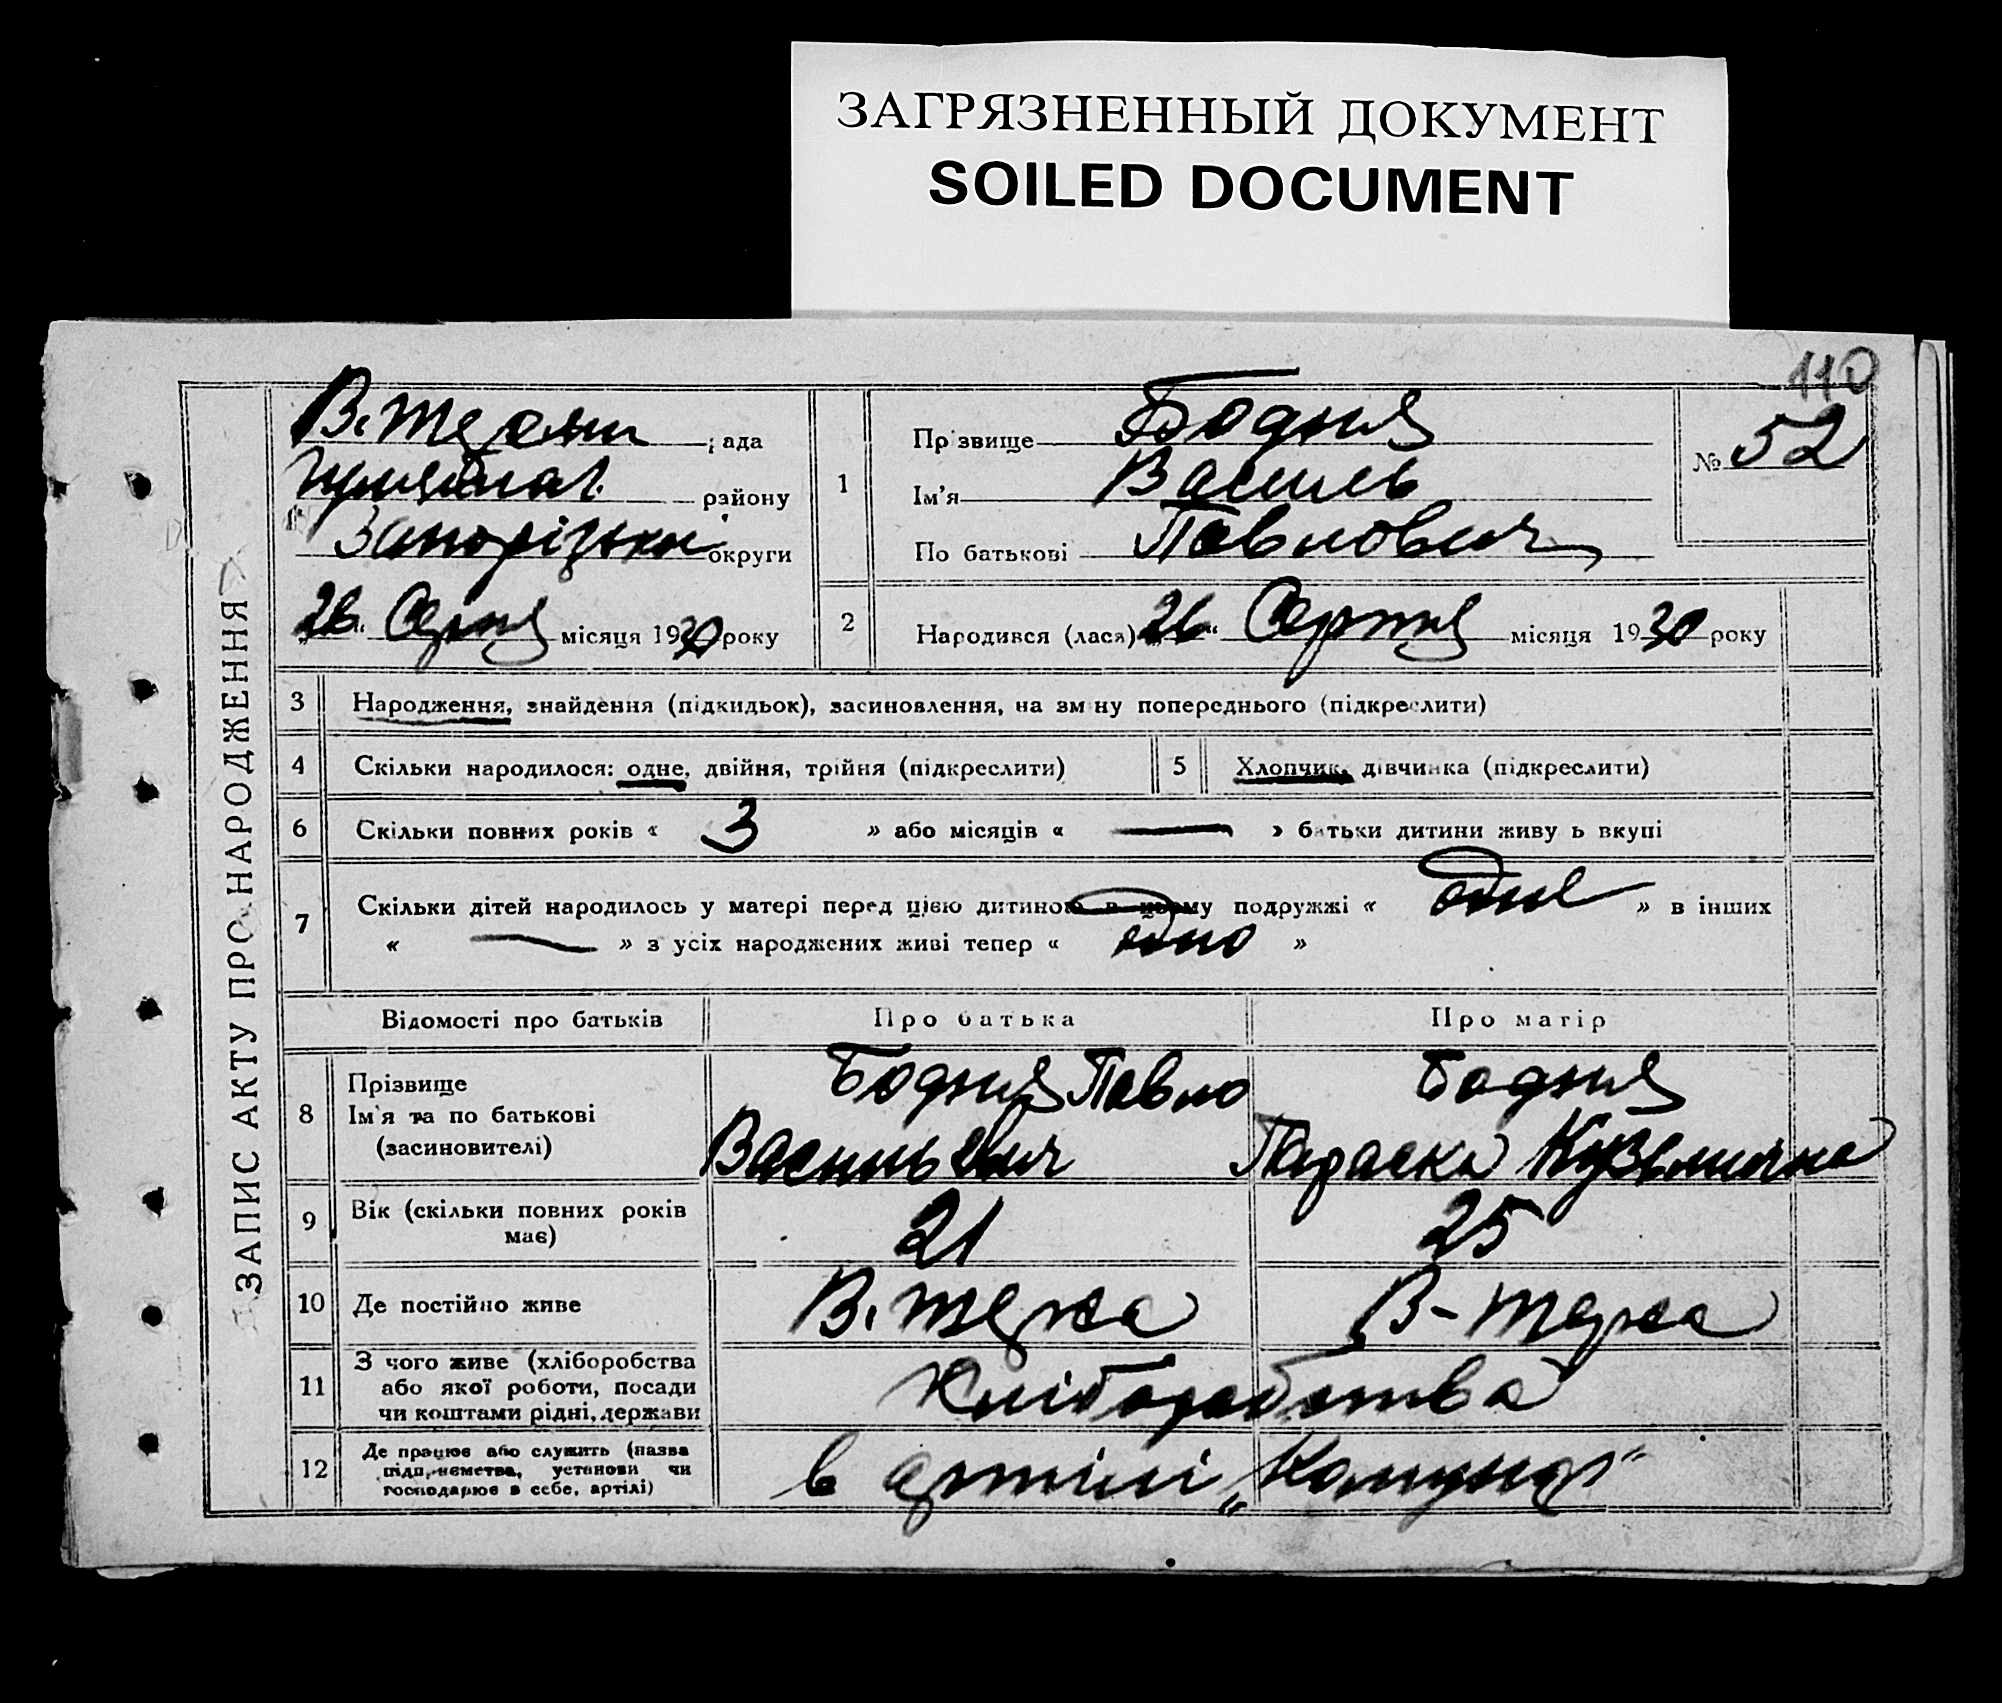 ЗАГРЯЗНЕННЫЙ ДОКУМЕНТ
SOILED DOCUMENT
110
ЗАПИС АКТУ ПРО НАРОДЖЕННЯ
ада
району
Запорізької округи
26 Серпня місяця 1930 року
№ 52
1 Пр звище Бодня
Ім'я Василь
По батькові Павлович
2 Народився (лася) 26 Серпня місяця 1930 року
3 Народження, знайдення (підкидьок), засиновлення, на зм ну попереднього (підкреслити)
4 Скільки народилося: одне, двійня, трійня (підкреслити)
5 Хлопчик, дівчинка (підкреслити)
6 Скільки повних років « 3 » або місяців « — » батьки дитини живу ь вкупі
7 Скільки дітей народилось у матері перед цією дитиною в цьому подружжі « одне » в інших
« — » з усіх народжених живі тепер « одно »
Відомості про батьків
Про батька
Про матір
8 Прізвище
Ім'я та по батькові
(засиновителі)
Бодня Павло
Васильевич
Бодня
Параска Кузьминична
9 Вік (скільки повних років
має)
21
25
10 Де постійно живе
В. Терса
В-Терса
11 З чого живе (хліборобства
або якої роботи, посади
чи коштами рідні, держави
Хліборобства
12 Де працює або служить (назва
підпр.иємства, установи чи
господарює в себе, артілі)
в артілі „Комунар"